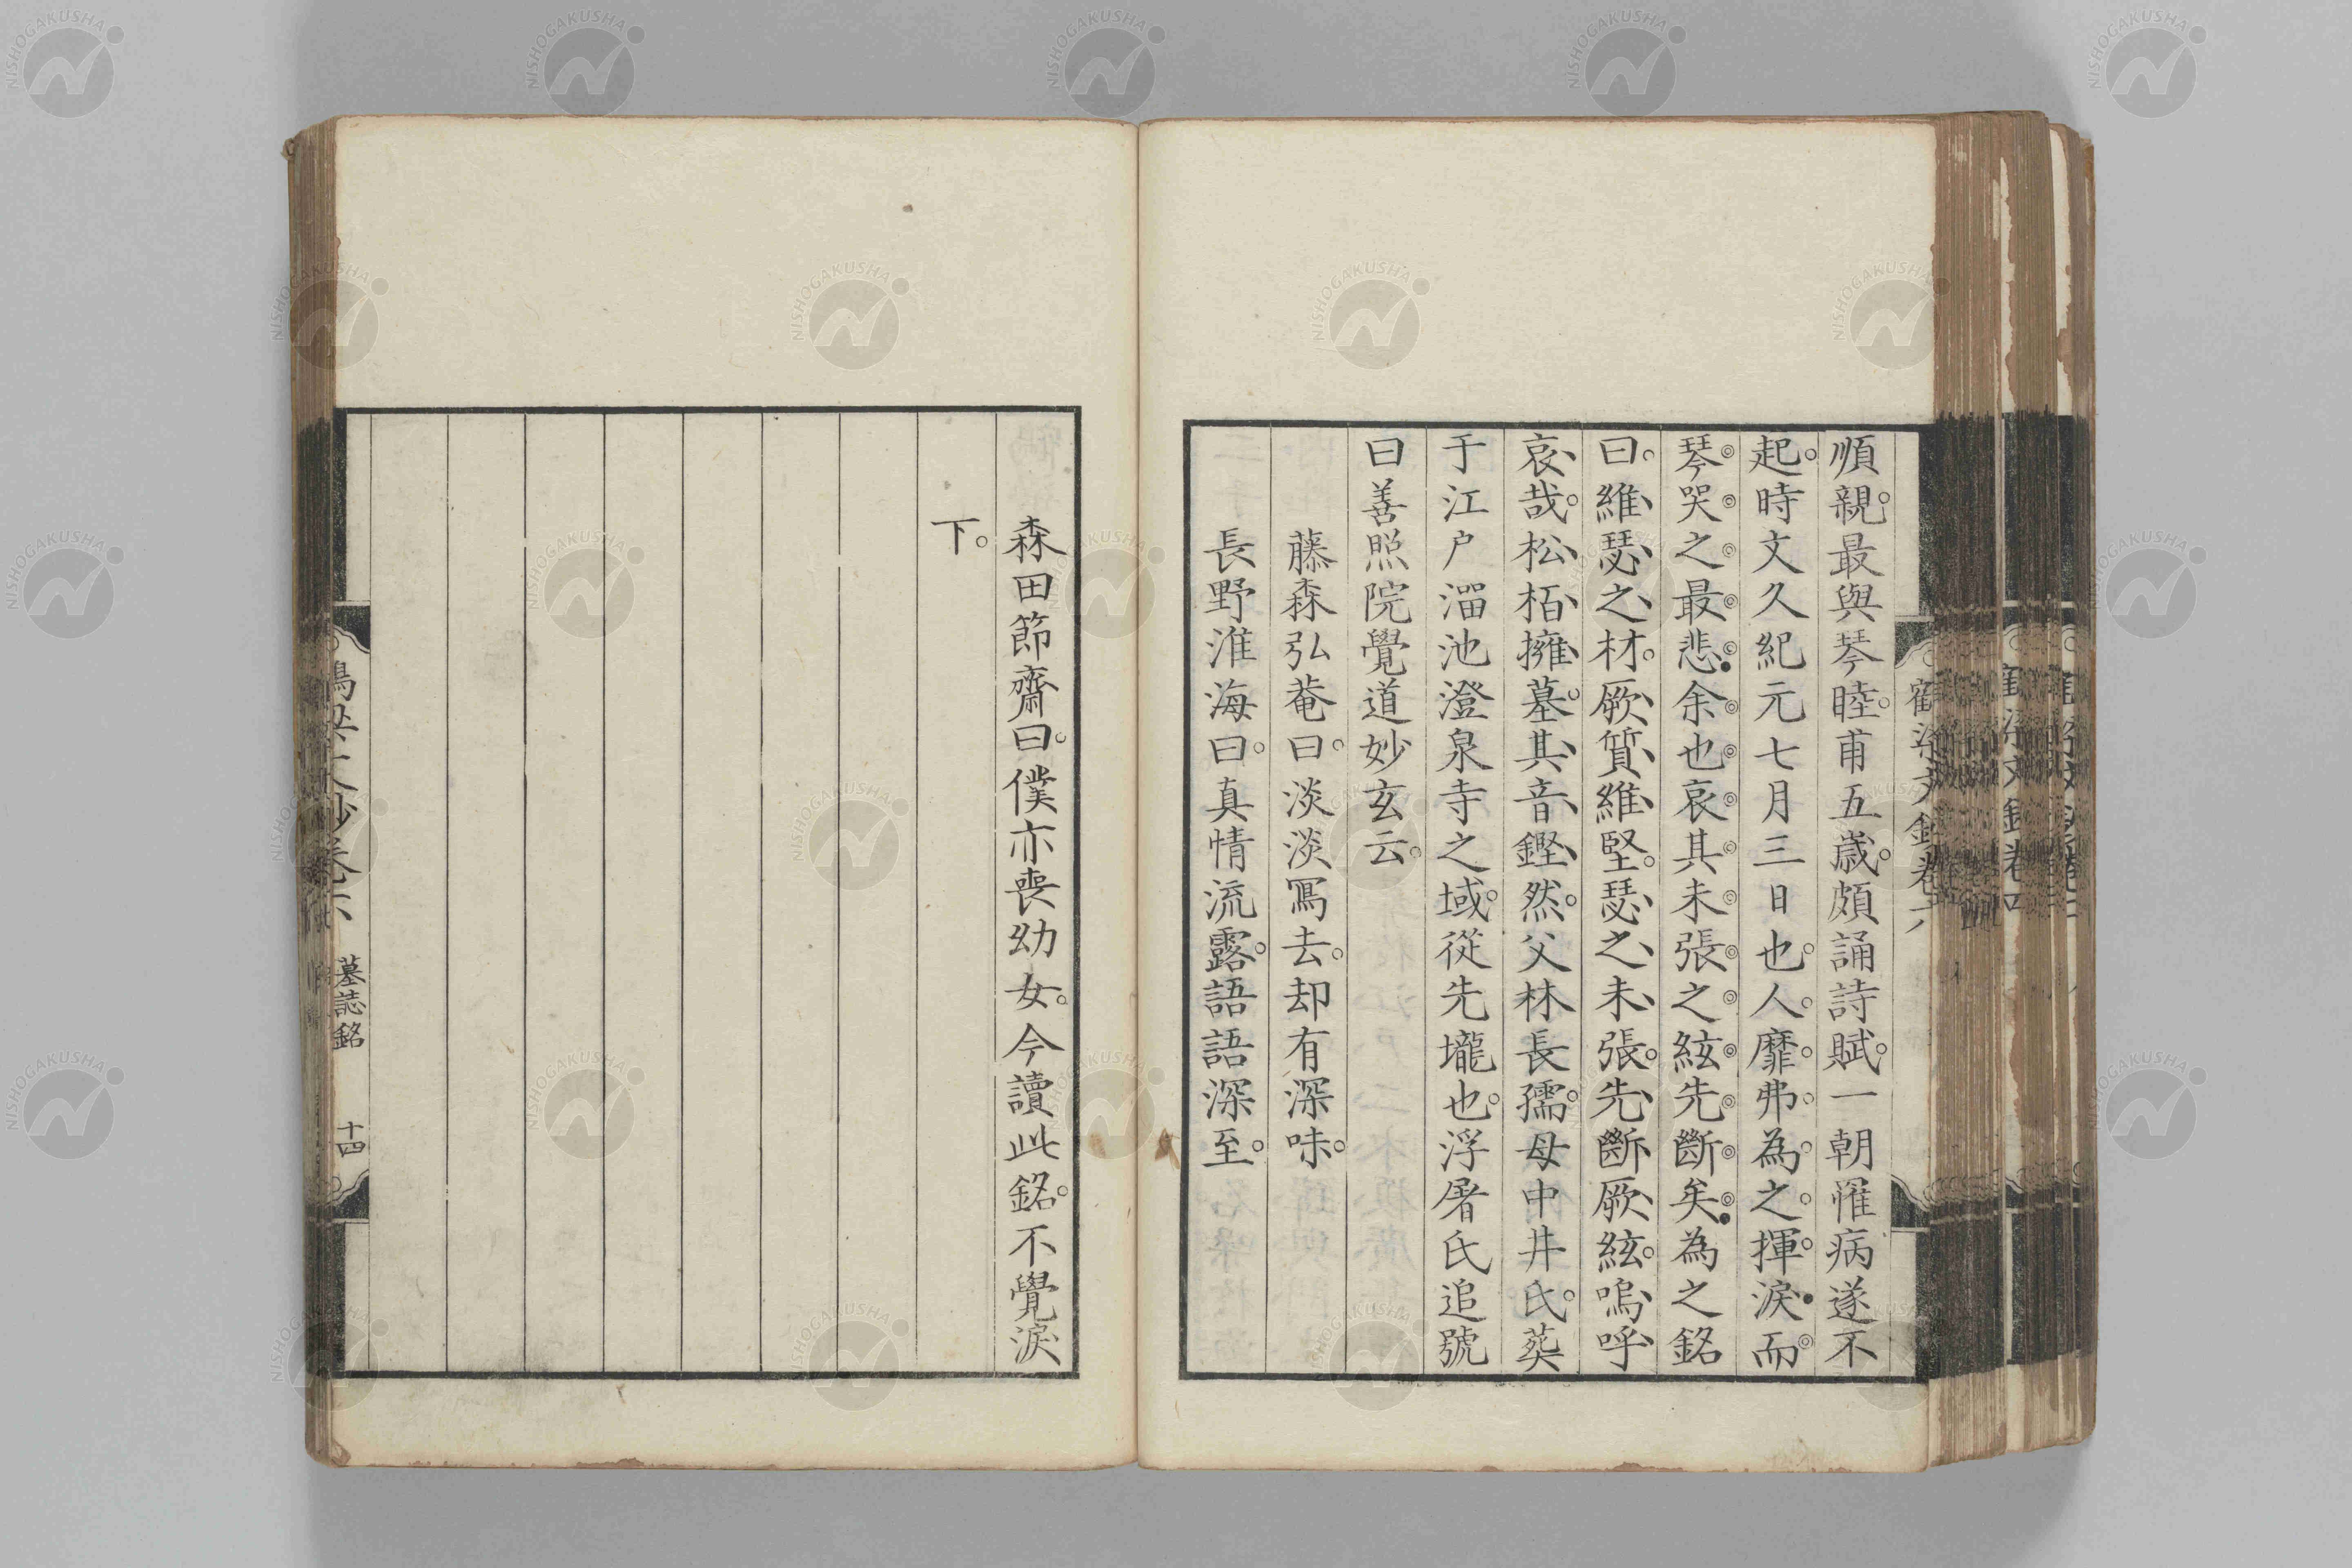 順親最與琴睦甫五歲頗誦詩賦一朝罹病遂不
起時文久紀元七月三日也人靡弗為之揮淚而
琴哭之最悲余也哀其未張之絃先斷矣為之銘
曰維瑟之材厥質維堅瑟之未張先斷厥絃嗚呼
哀哉松栢擁墓其音鏗然父林長孺母中井氏葬
于江戶溜池澄泉寺之域從先壠也浮屠氏追號
曰善照院覺道妙玄云
藤森弘菴曰淡淡寫去却有深味
長野淮海曰真情流露語語深至
森田節齋曰僕亦喪幼女今讀此銘不覺淚
下
墓誌銘
十四
NISHOGAKUSHA